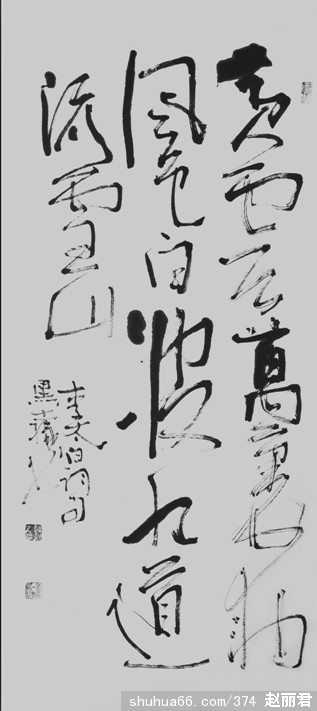 黄云万里动
风色白波九道
流雪山
李太白词句
黑
shuhua66.com/374 赵丽君